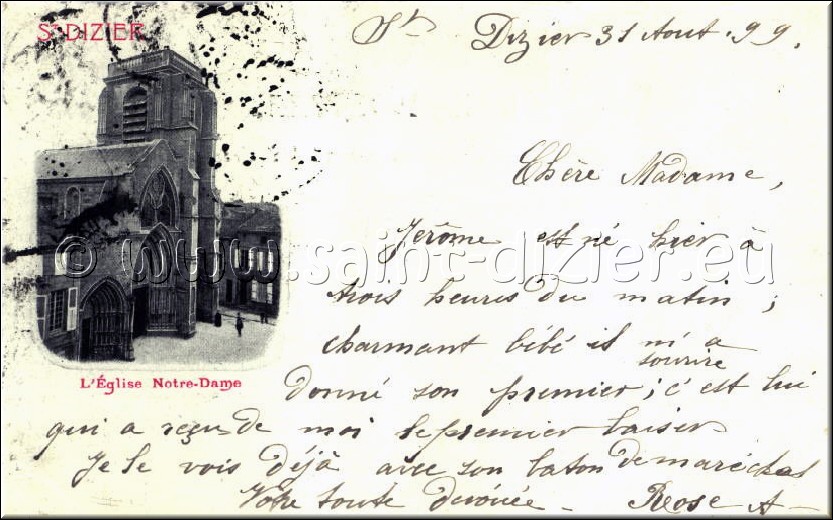 St DIZIER
St Dizier 31 Aout 99.
Chère Madame,
Jérôme est né hier à
trois heures du matin ;
charmant bébé il m'a
sourire
donné son premier ; c'est lui
qui a reçu de moi le premier baiser
Je le vois déjà avec son baton de maréchal
Votre toute dévouée - Rose A-
L'Église Notre-Dame
© www.saint-dizier.eu